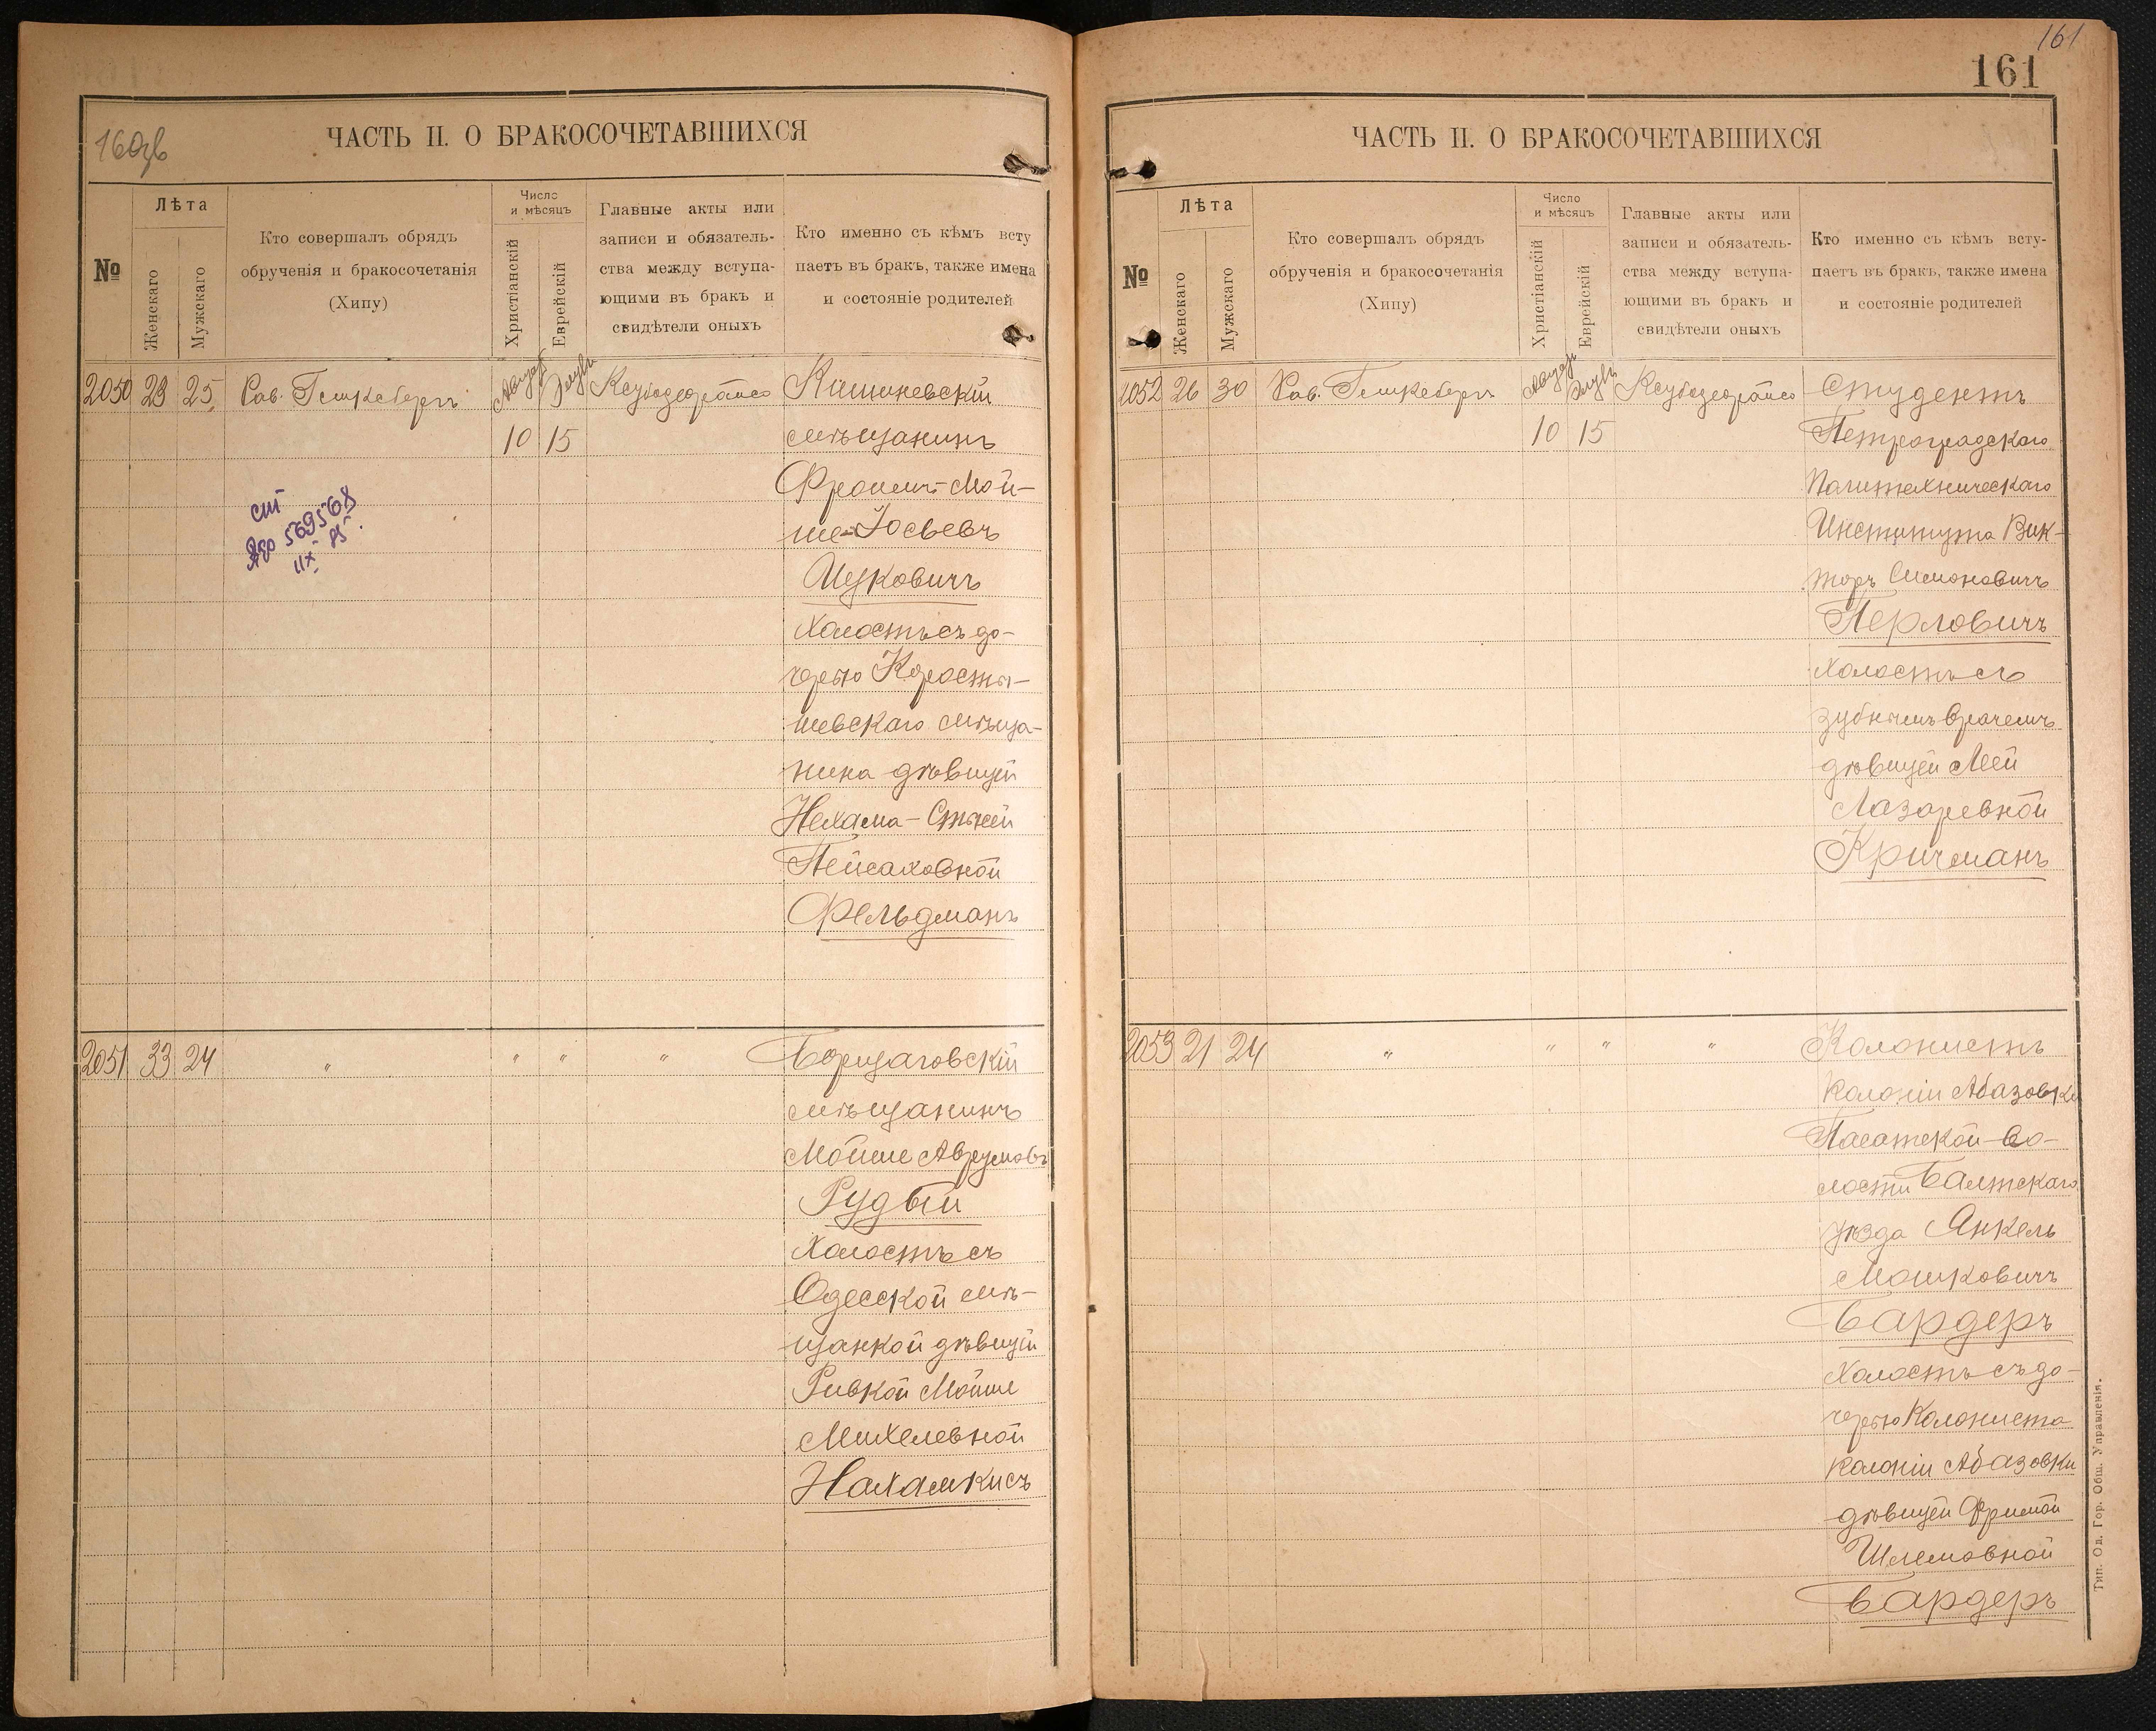 160 об
ЧАСТЬ II. О БРАКОСОЧЕТАВШИХСЯ
№
Лѣта
Женскаго
Мужскаго
Кто совершалъ обрядъ
обрученія и бракосочетанія
(Хипу)
Число
и мѣсяцъ
Христіанскій
Еврейскій
Главные акты или
записи и обязатель-
ства между вступа-
ющими въ бракъ и
свидѣтели оныхъ
Кто именно съ кѣмъ всту
паетъ въ бракъ, также имена
и состояніе родителей
2050 23 25 Рав. Августъ Элулъ Кишиневскій
10 15 мѣщанинъ
Фроимъ-Мой-
ше-Іосьевъ
Ицковичъ
холостъ съ до-
черью Коросты-
шевскаго мѣща-
нина дѣвицей
Нехама-Стысей
Пейсаховной
Фельдманъ
569568
IIX 85.
2051 33 24 " " " " Борщаговскій
мѣщанинъ
Мойше Аврумовъ
Рудый
холостъ съ
Одесской мѣ-
щанкой дѣвицей
Ривкой Мойше
Михелевной
Нахамкисъ
161
161
ЧАСТЬ II. О БРАКОСОЧЕТАВШИХСЯ
№
Лѣта
Женскаго
Мужскаго
Кто совершалъ обрядъ
обрученія и бракосочетанія
(Хипу)
Число
и мѣсяцъ
Христіанскій
Еврейскій
Главные акты или
записи и обязатель-
ства между вступа-
ющими въ бракъ и
свидѣтели оныхъ
Кто именно съ кѣмъ всту-
паетъ въ бракъ, также имена
и состояніе родителей
2052 26 30 Рав. Августъ Элулъ Студентъ
10 15 Петроградскаго
Политехническаго
Института Вик-
торъ Симоновичъ
Перловичъ
холостъ съ
зубнымъ врачемъ
дѣвицей Леей
Лазаревной
Кричманъ
2053 21 24 " " " " Колонистъ
колоніи Абазовки
Пасатской во-
лости Балтскаго
уѣзда Янкель
Мошковичъ
Бардеръ
холостъ съ до-
черью Колониста
колоніи Абазовки
дѣвицей Фримой
Шлемовной
Бардеръ
Тип. Од. Гор. Общ. Управленія.